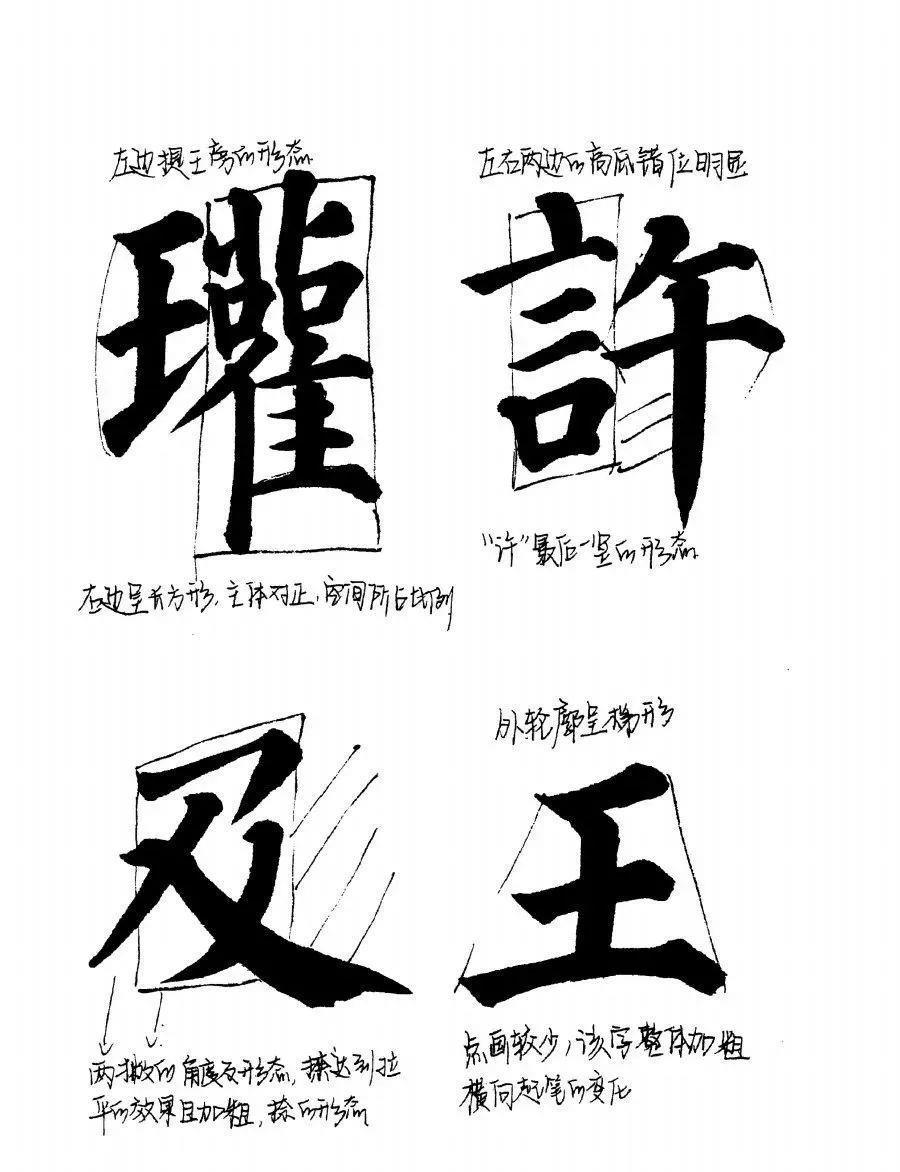 左边提王旁的形态
瓘
左边呈长方形,主体对正,空间所占比例
左右两边的高底错位明显
許
“许”最后一竖的形态
及
两撇的角度及形态,捺达到拉
平的效果且加粗,捺的形态
外轮廓呈梯形
王
点画较少,该字整体加粗
横向起笔的变化